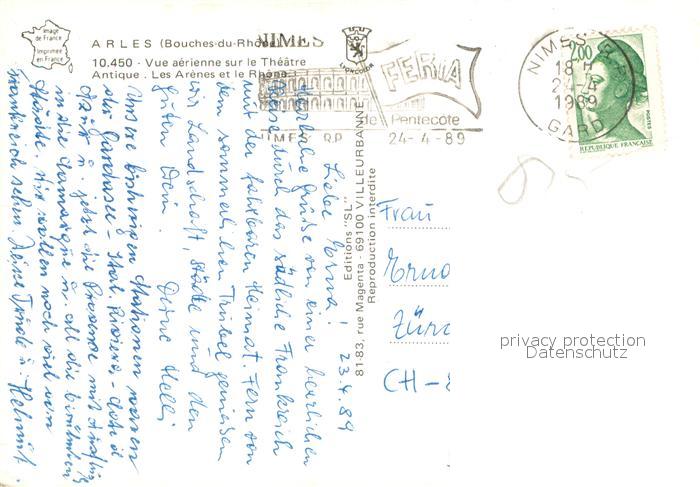 Image
de France
Imprimée
en France
ARLES (Bouches-du-Rhône)
10.450 - Vue aérienne sur le Théâtre
Antique. Les Arènes et le Rhône
LYONCOLOR
NIMES
FERIA
de Pentecôte
NIMES R.P. 24-4-89
NIMES R.P.
18 H
24-4
1989
GARD
2,00
POSTES
REPUBLIQUE FRANÇAISE
Editions "SL"
81-83, rue Magenta - 69100 VILLEURBANNE
Reproduction interdite
23.4.89
Liebe Erna!
Herzliche Grüße von einer herrlichen
Reise durch das südliche Frankreich
mit der fahrbaren Heimat. Fern von
dem sommerlichen Trubel genießen
wir Landschaft, Städte und den
guten Wein.
Unsere bisherigen Stationen waren
der Gardasee - Ital. Riviera - Côte d'
Azur u. jetzt die Provence mit
in die Camargue u. all die berühmten
Städte. Wir wollen noch viel von
Frankreich sehen. Deine Trude u. Helmut.
Frau
Erna
Züri
CH-8
privacy protection
Datenschutz